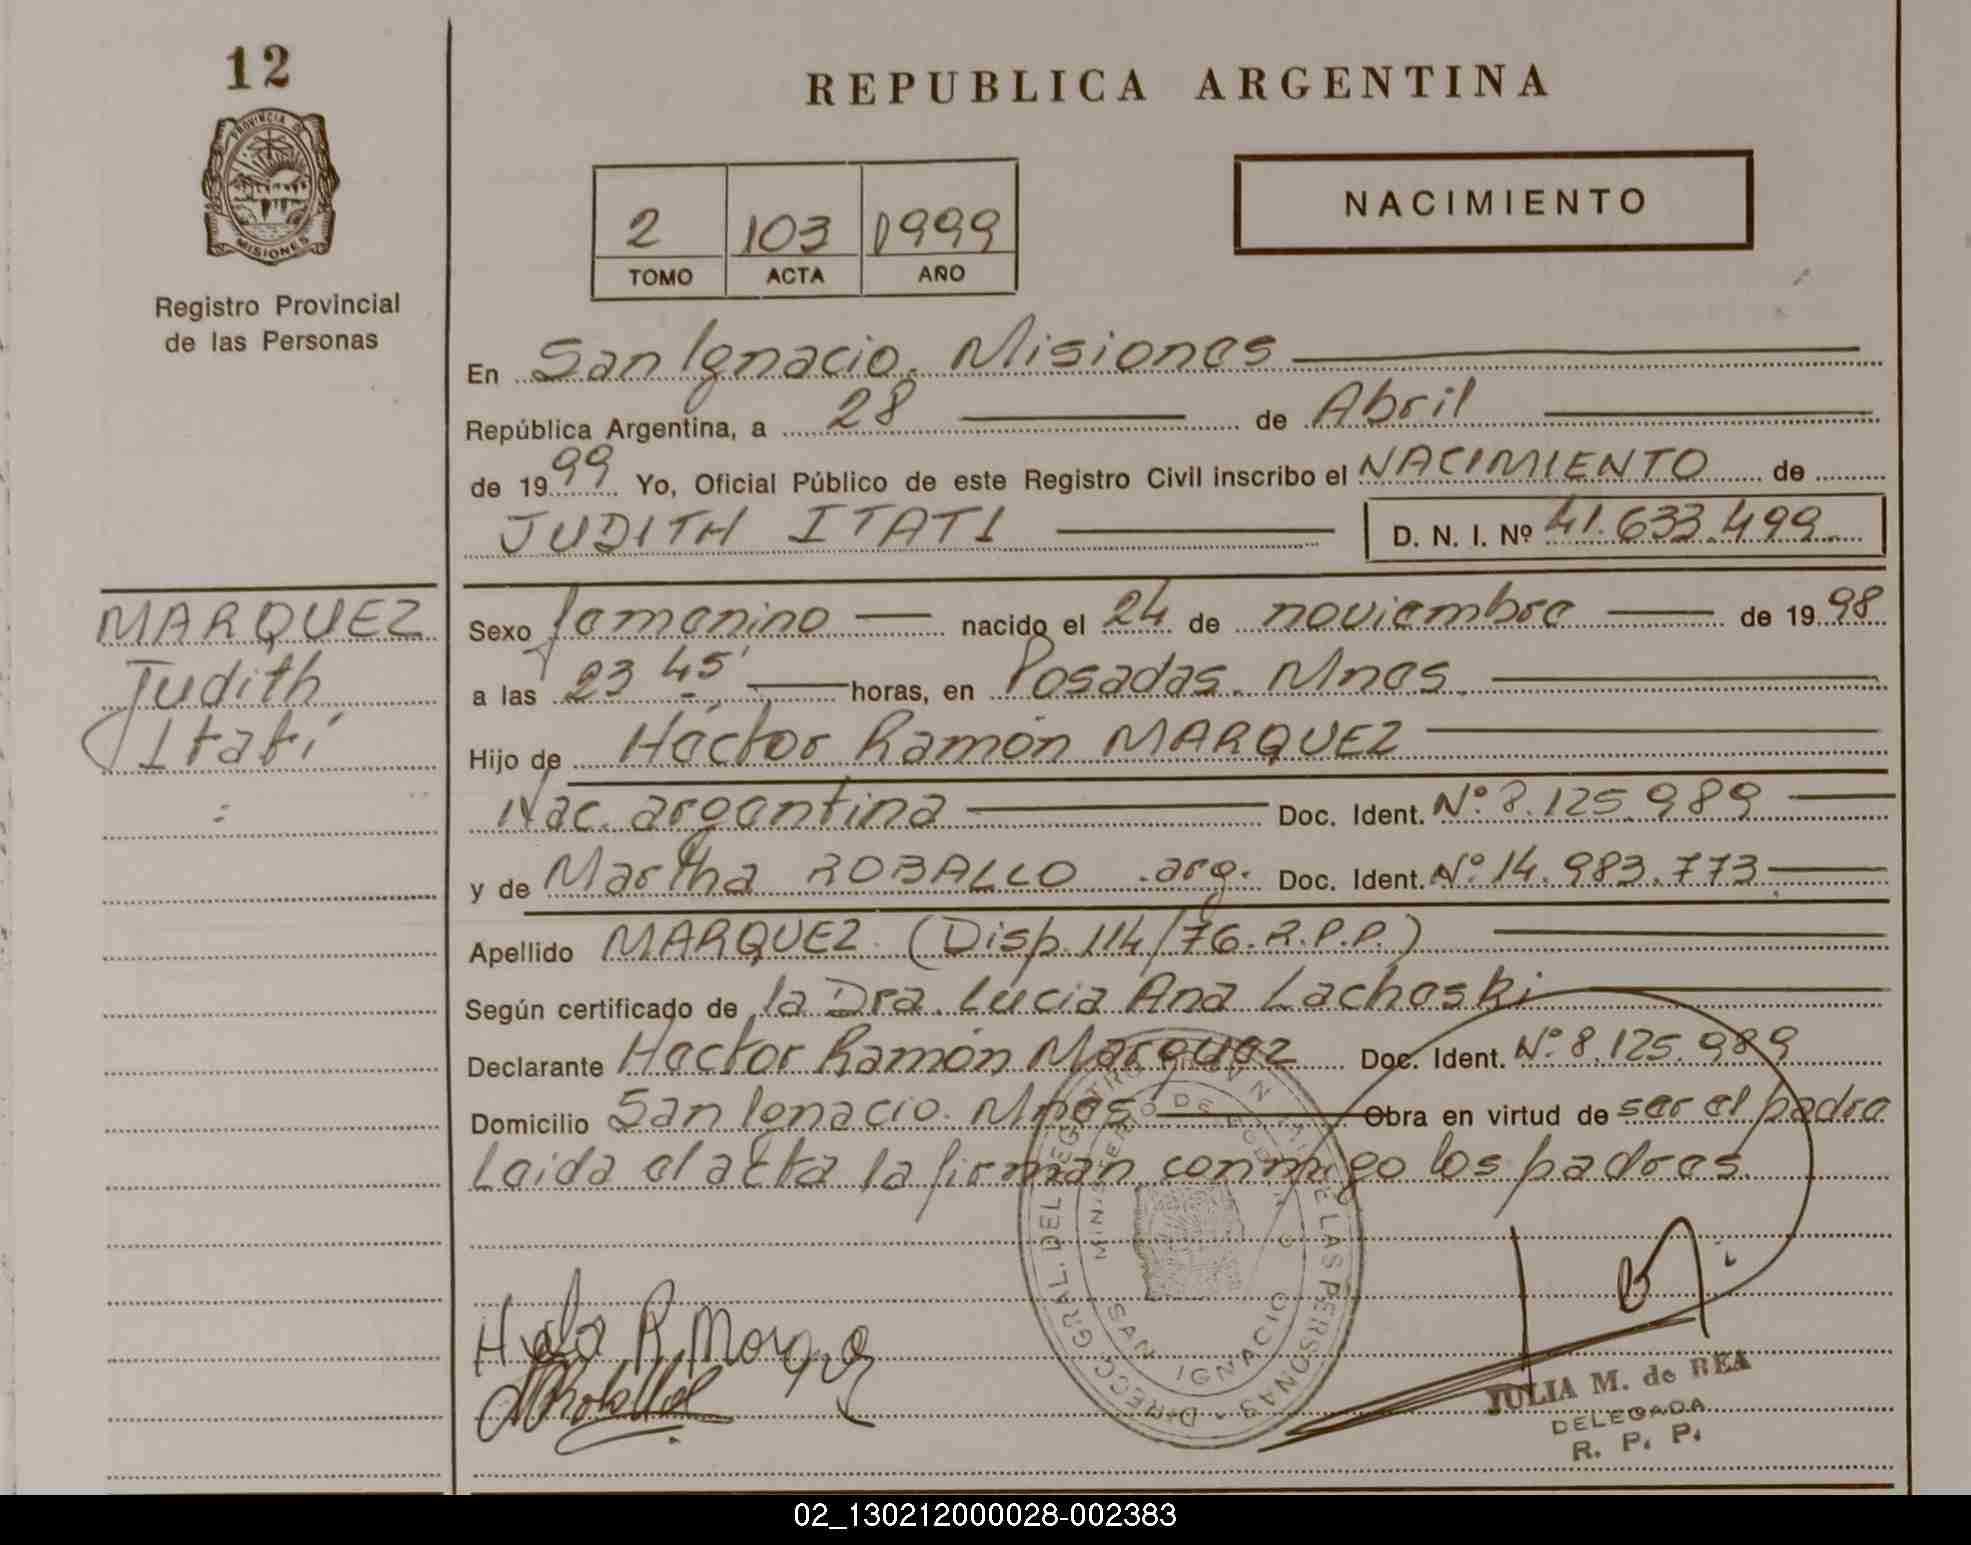 12
PROVINCIA DE
MISIONES
Registro Provincial
de las Personas
REPUBLICA ARGENTINA
2 103 1999
TOMO ACTA AÑO
NACIMIENTO
En San Ignacio. Misiones
República Argentina, a 28 de Abril
de 1999 Yo, Oficial Público de este Registro Civil inscribo el NACIMIENTO de
JUDITH ITATI D. N. I. Nº 41.633.499
MARQUEZ
Judith
Itatí
Sexo femenino nacido el 24 de noviembre de 1998
a las 23 45' horas, en Posadas. Mnes.
Hijo de Héctor Ramón MARQUEZ
Nac. argentina Doc. Ident. Nº 8.125.989
y de Martha ROBALLO .arg. Doc. Ident. Nº 14.983.773
Apellido MARQUEZ. (Disp. 114/76.R.P.P.)
Según certificado de la Dra. Lucia Ana Lacheski
Declarante Hector Ramón Marquez Doc. Ident. Nº 8.125.989
Domicilio San Ignacio. Mnes Obra en virtud de ser el padre
Leida el acta la firman conmigo los padres.
DIRECC. GRAL. DEL REGISTRO PROVINCIAL DE LAS PERSONAS
MINISTERIO DE GOBIERNO
SAN IGNACIO
JULIA M. de REA
DELEGADA
R. P. P.
02_130212000028-002383